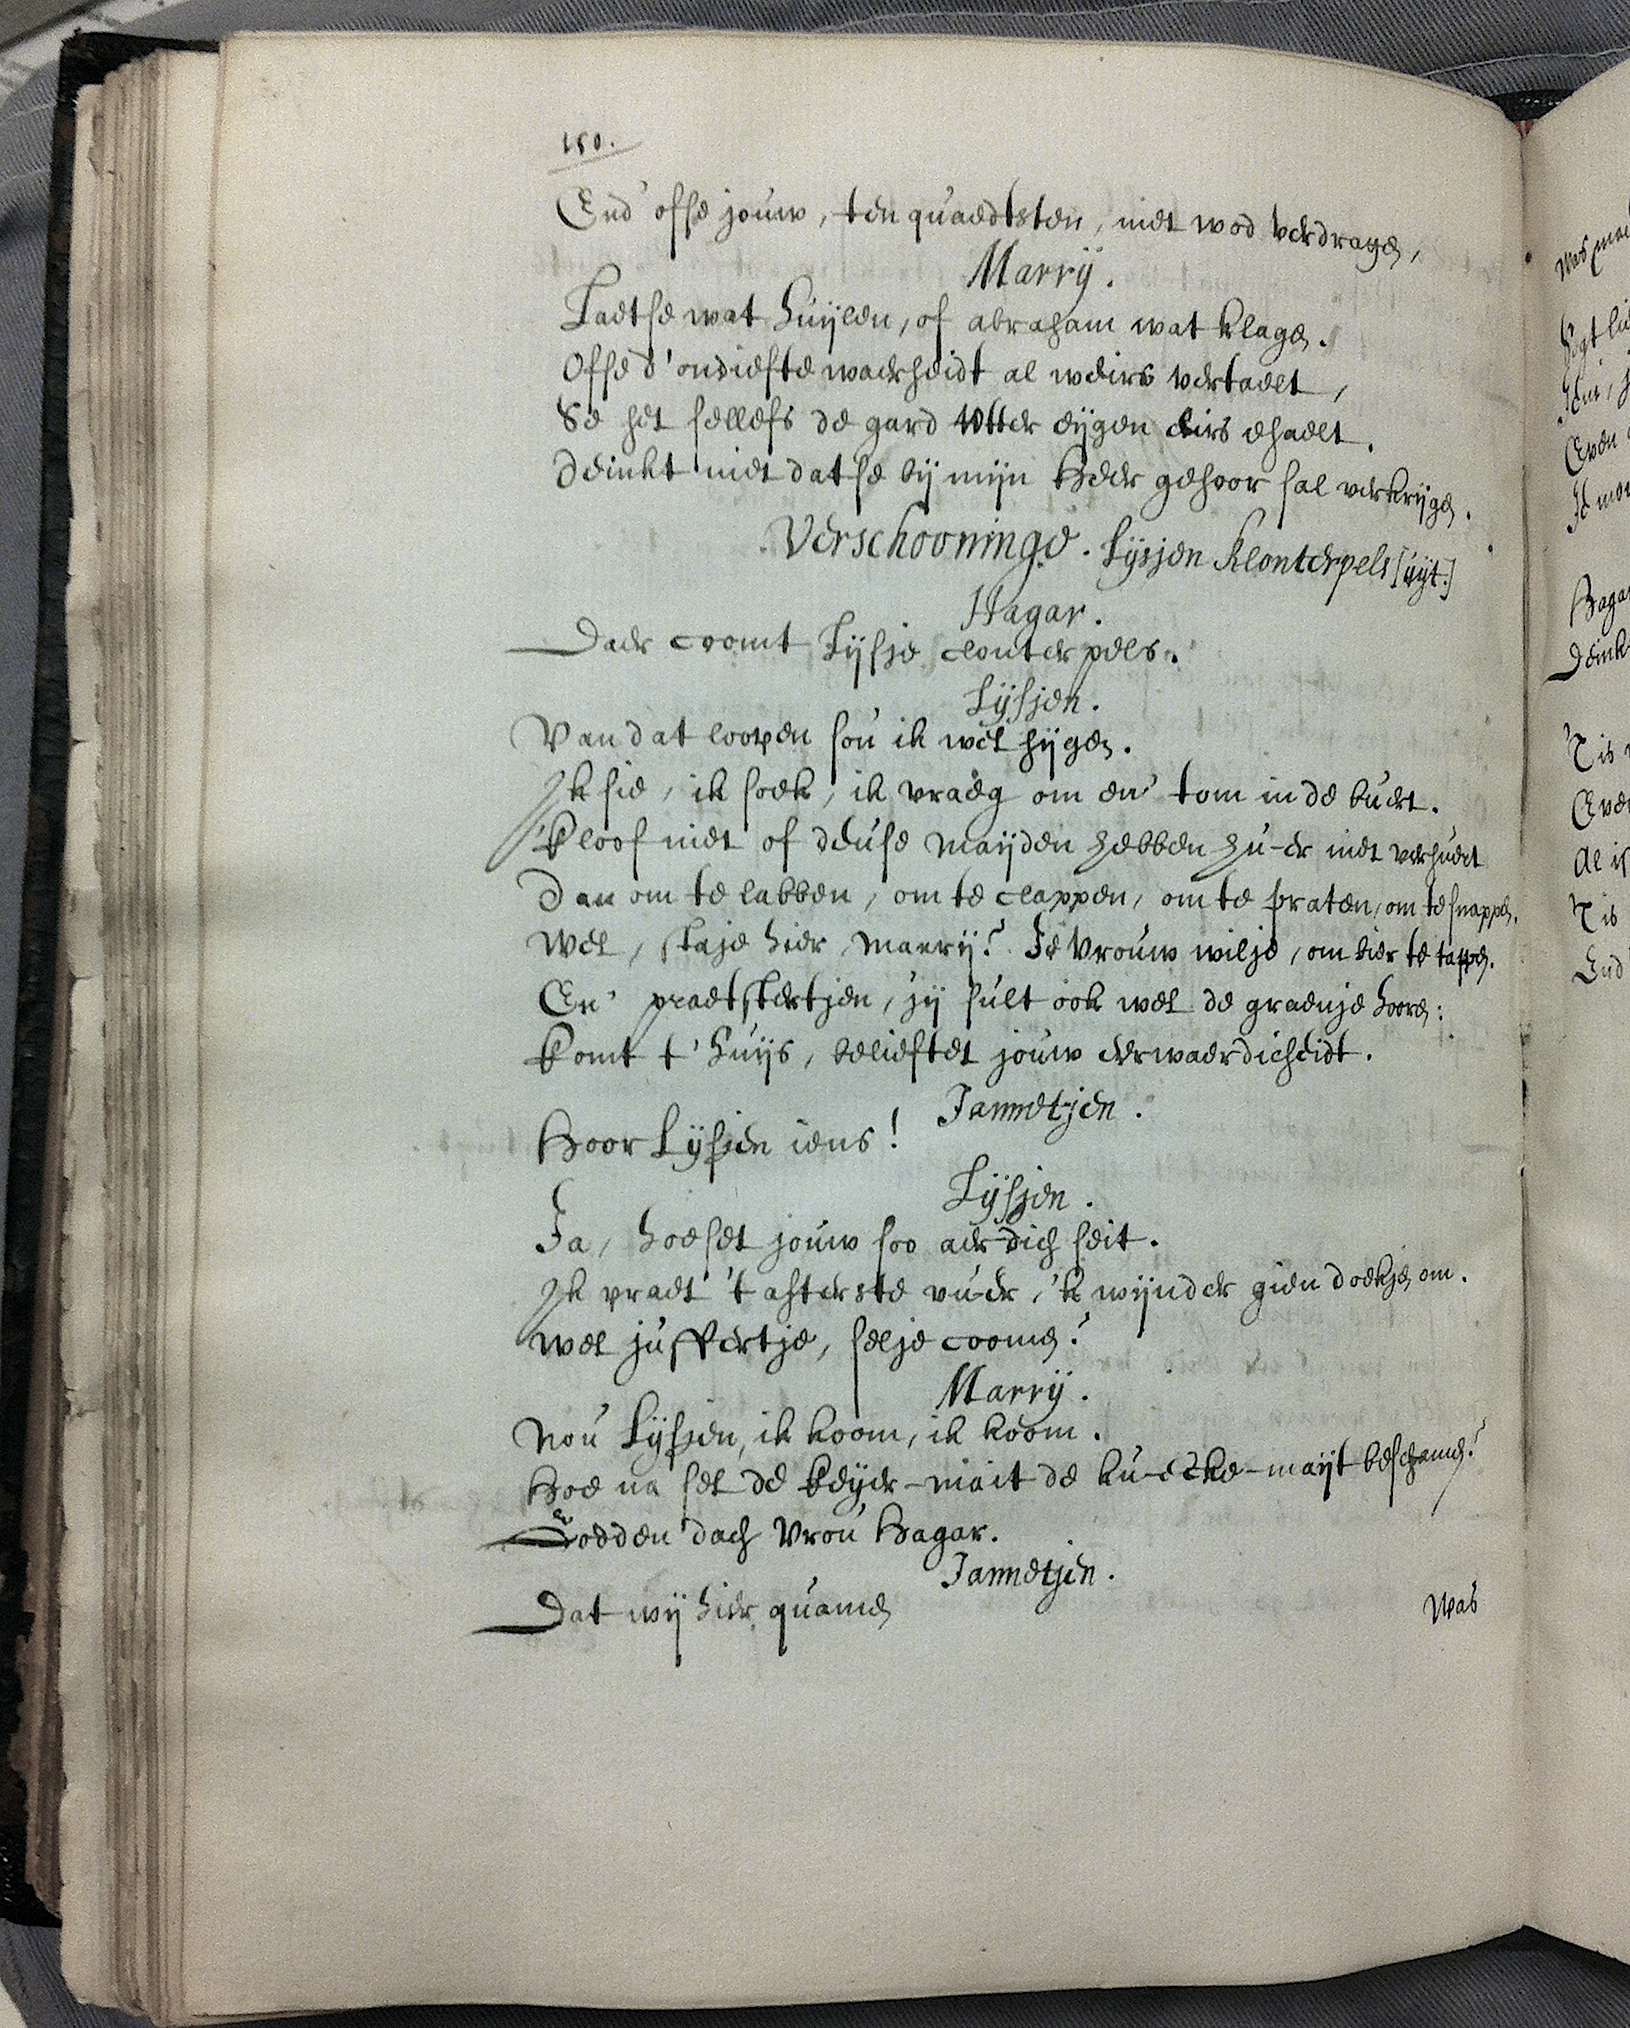 150.
End' ofse jouw, ten quaedtsten, niet wod verdragen,
Marrÿ.
Laetse wat huÿlen, of abraham wat klagen.
Ofse d'ondiefte waerheidt al weirs vertaelt,
Se het sellefs de gard totter eÿgen eirs ehaelt.
Deinkt niet datse bÿ mÿn heer gehoor sal verkrÿgen.
Verschooninge. Lÿsjen Klonterpels [uÿt.]
Hagar.
Daer coomt Lÿsje clonterpels.
Lÿsjen.
Van dat loopen sou ik wel hÿgen.
Ik sie, ik soek, ik vraeg om en' tom in de buert.
'k loof niet of deuse maÿden hebben hu-er niet verhuert
Dan om te labben, om te clappen, om te praten, om te snappen.
Wel, staje hier Marrÿ? Je vrouw wilje, om bier te tappen.
En' praetstertjen, jÿ sult ook wel de graenje hooren:
Komt t'huÿs, belieftet jouw eerwaerdicheidt.
Jannetjen.
Hoor Lÿsjen iens!
Lÿsjen.
Ja, hoeset jouw soo aerdich seit.
Ik praet 't afterste vu-er, 'k wÿnder gien doekjen om.
Wel juffertje, selje coomen?
Marrÿ.
Nou Lÿsjen, ik koom, ik koom.
Hoe na sel de keÿer-mait de ku-ecke-maÿt beschamen?
Goedden dach Vrou Hagar.
Jannetjen.
Dat wÿ hier quamen
Was
Was
Hagar
Deink
't is
Even
Al is
't is
End